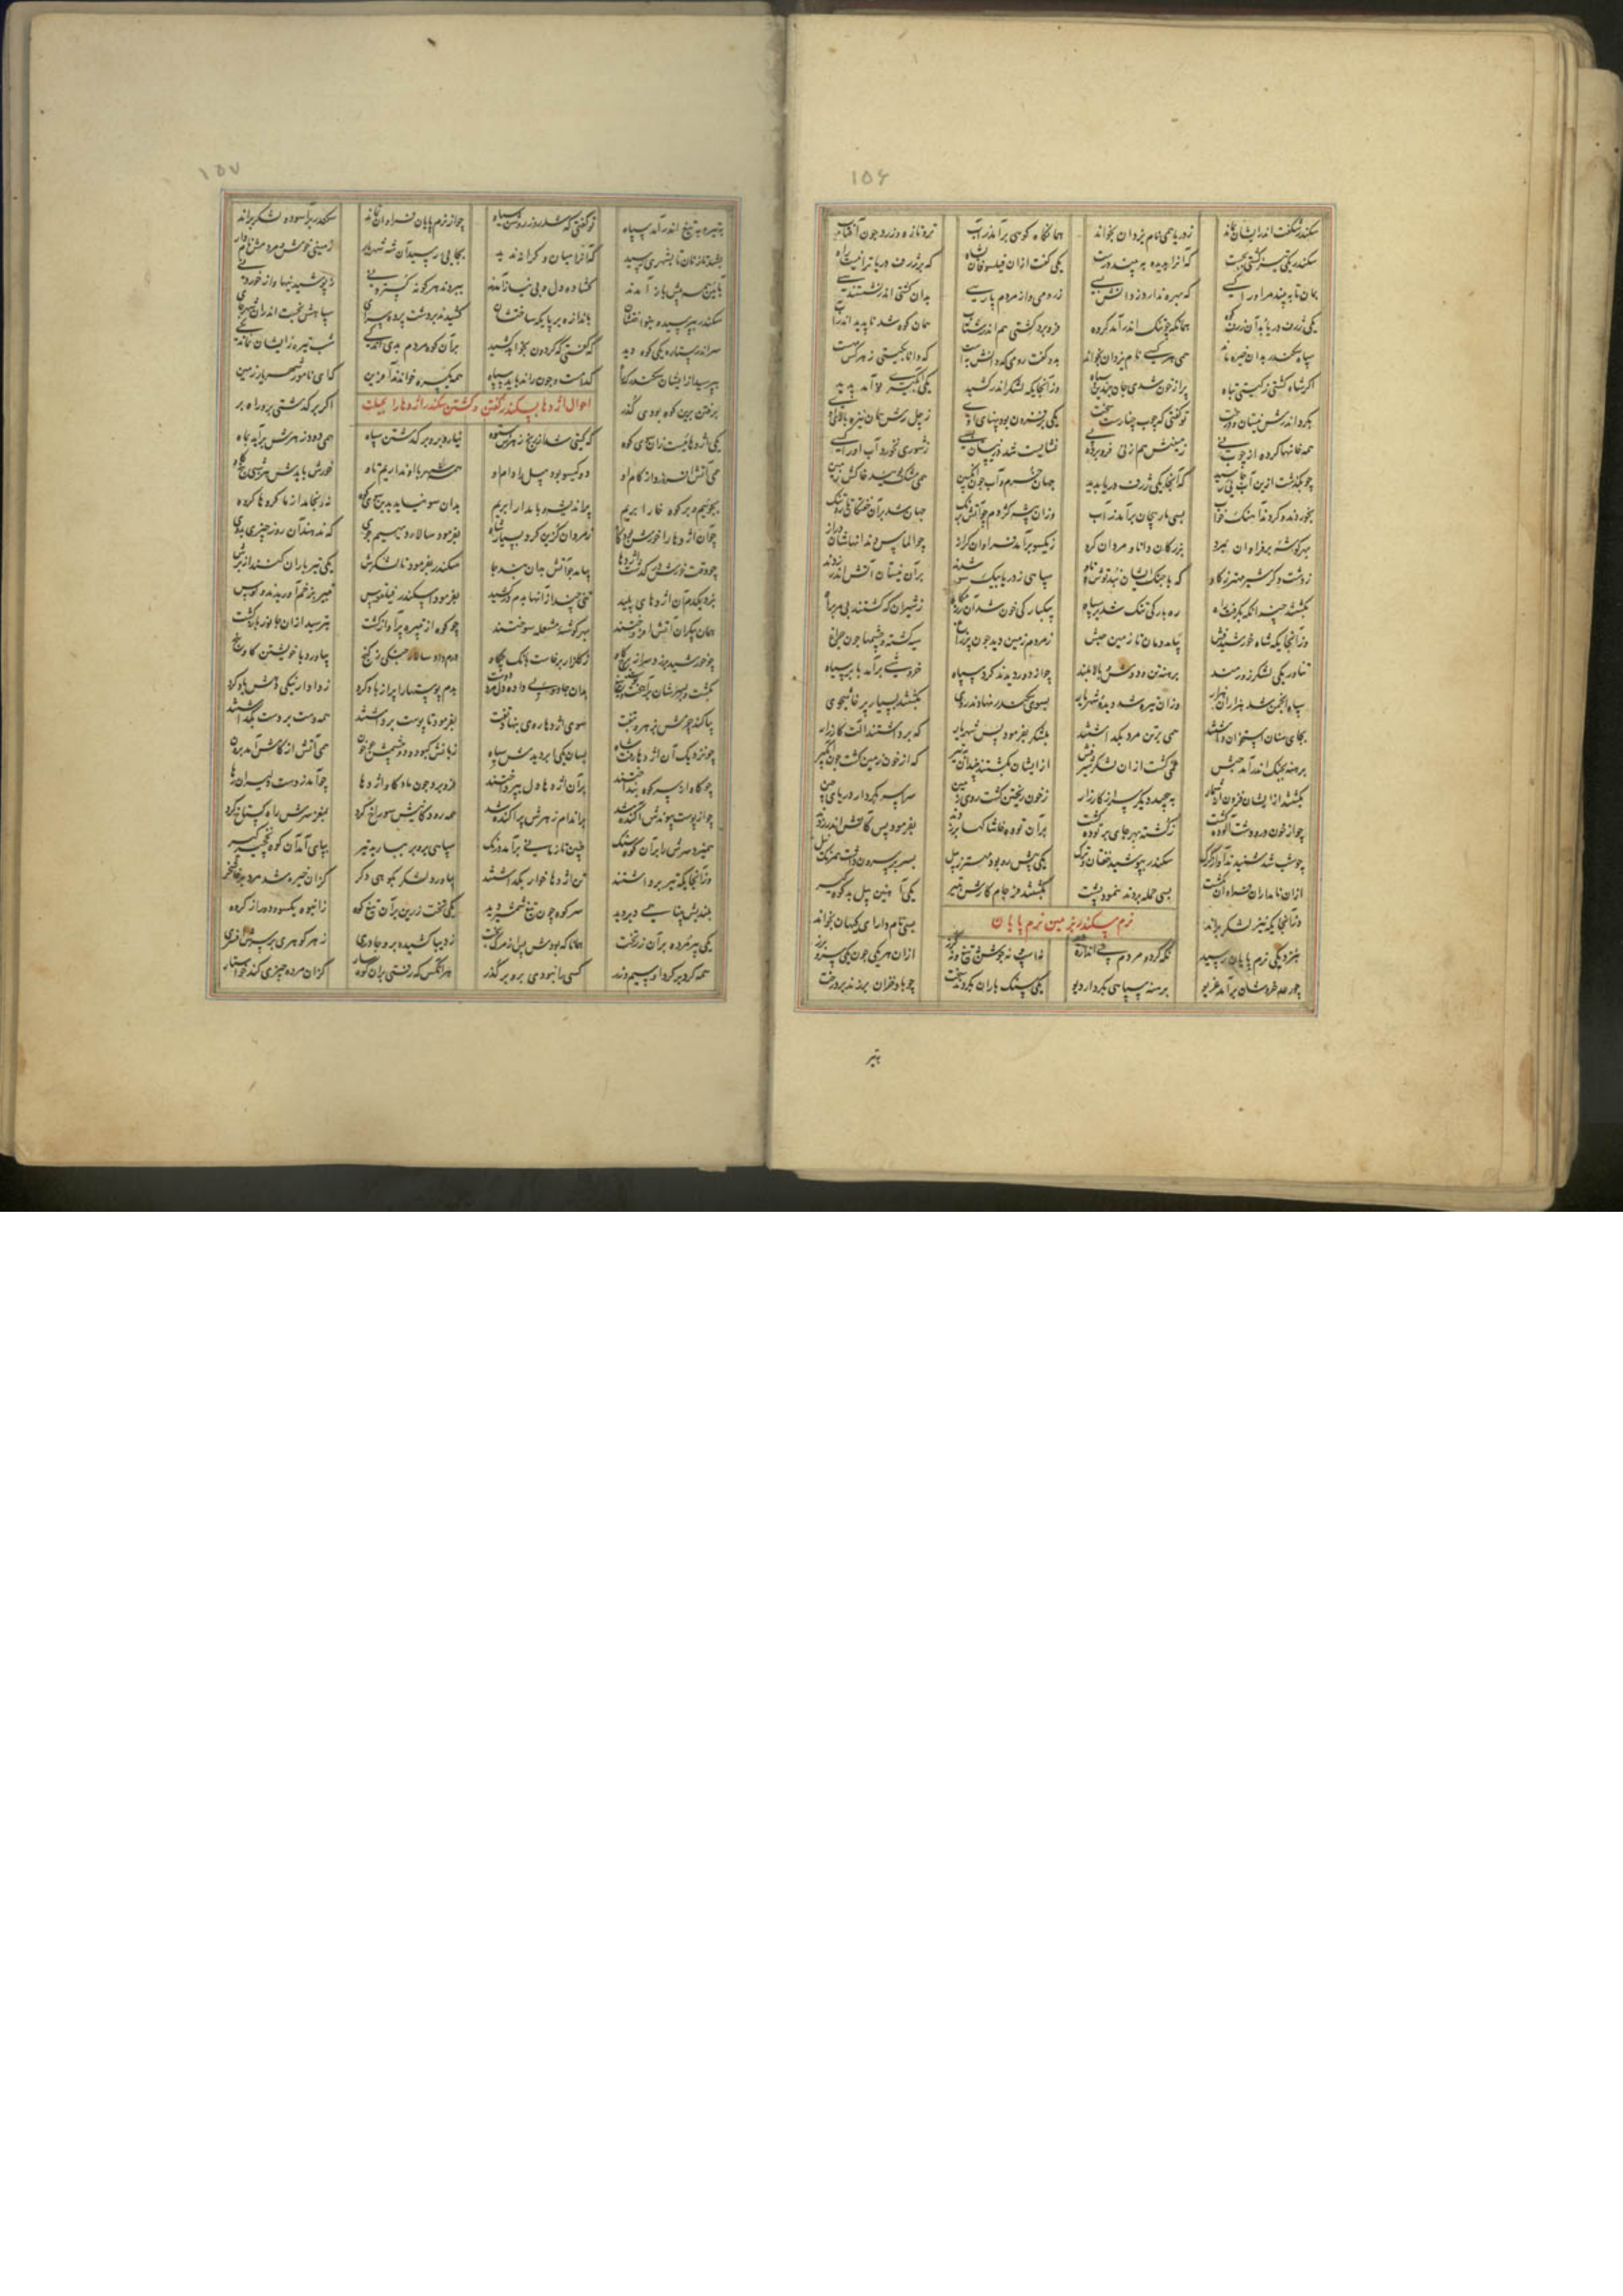 ۱۵۶
سکندر شگفت اندر ایشان بماند زدریا همی نام یزدان بخواند همانگاه کوهی برآمد زآب تروتازه وزرد چون آفتاب
سکندر یکی تیز کشتی بجست که آنرا بدیده به بیند درست یکی گفت ازان فیلسوفان بشاه که بر ژرف دریا ترا نیست راه
بمان تا به بیند مر او را کسی که بهره ندارد زدانش بسی زرومی واز مردم پارسی بدان کشتی اندر نشستند سی
یکی زرد ماهی بد آن زرد کوه همانگه چو تنگ اندر آمد گروه فرو برد کشتی هم اندر شتاب همان کوه شد ناپدید اندر آب
سپاه سکندر بدان خیره ماند همی هر کسی نام یزدان بخواند بدو گفت رومی که دانش به است که دانا بگیتی زهر کس مه است
اگر شاه کشتی زگیتی تباه پر از خون شدی جان چندین سپاه وزآنجایگه لشکر اندر کشید یکی آبگیری نو آمد پدید
بگرد اندرش نیستان درخت تو گفتی که چوب چنارست سخت یکی بر فزون بود پهنای اوی زچل رش همان نیزه بالای اوی
همه خانها کرده از چوب نی زمینش هم از نی فرو برده پی نشایست شد در نیستان بسی زشوری نخورد آب او را کسی
چو بگذشت ازین آب جایی رسید که آنجا یکی ژرف دریا بدید جهان خرم و آب چون انگبین همی مشک بوسید خاکش زمین
بخوردند و کردند آهنگ خواب بسی مار پیچان برآمد زآب وزان بیشه کژدم چو آتش برنگ جهان شد برآن خفتگان تار و تنگ
بهر گوشه بر فراوان بمرد بزرگان دانا و مردان گرد زیکسو برآمد فراوان گراز چو الماس دندانهاشان دراز
زدست دگر شیر مهتر زگاو که با جنگ ایشان نبد توش و تاو سپاهی زدریا بیک سو شدند برآن نیستان آتش اندر زدند
بکشتند چندانکه بگرفت راه ره بارگی تنگ شد بر سپاه بیکبارگی خون شد آن رزمگاه زشیران که گشتند بی مر تباه
وزآنجایگه شاه خورشیدفش بیامد دمان تا زمین حبش زمردم زمین دید چون پر زاغ سیه گشته و چشمها چون چراغ
تناور یکی لشکر زورمند برهنه تن و دوش و بالا بلند چو از دور دیدند گرد سپاه خروشی برآمد بابر سیاه
سپاه انجمن شد هزاران هزار وزان تیره شد دیده شهریار بسوی سکندر نهادند روی بکشتند بسیار پرخاشجوی
بجای سنان استخوان داشتند همی بر تن مرد بگذاشتند بلشکر بفرمود پس شهریار که برداشتند آلت کارزار
برهنه بجنگ اندر آمد حبش غمی گشت ازان لشکر شیرفش از ایشان بکشتند چندان بتیر که از خون زمین گشت چون آبگیر
بکشتند از ایشان فزون از شمار به پیچید دیگر سر از کارزار زخون ریختن گشت روی زمین سراسر بکردار دریای چین
چو از خون دره و دشت آلوده گشت زکشته بهر جای بر توده گشت برآن توده خاشاکها بر زدند بفرمود پس کآتش اندر زدند
چو شب شد شنیدند آواز گرگ سکندر بپوشید خفتان و ترگ یکی پیش رو بود مهتر زپیل بسر بر سرون داشت همرنگ نیل
ازان نامداران فراوان بکشت بسی حمله بردند ننمود پشت بکشتند فرجام کارش بتیر یکی آهنین پیل بد کوه گیر
وزآنجایگه تیز لشکر براند بسی نام دارای کیهان بخواند
رزم سکندر بزمین نرم پایان
بنزدیکی نرم پایان رسید نگه کرد و مردم بی اندازه دید نه اسپ و نه جوشن نه تیغ و نه گرز ازان هر یکی چون یکی سرو برز
چو رعد خروشان برآمد غریو برهنه سپاهی بکردار دیو یکی سنگ باران بکردند سخت چو باد خزان برزند بر درخت
بتیر
۱۵۷
بتیر و به تیغ اندر آمد سپاه تو گفتی که شد روز روشن سیاه چو از نرم پایان فراوان نماند سکندر برآسوده لشکر براند
بشد تازنان تا بشهری رسید که آنرا میان و کرانه ندید بجایی رسید آن شه شهریار زمینی خوش و مردمش نامدار
بآیین همه پیش باز آمدند گشاده دل و بی نیاز آمدند ببردند هر گونه گستردنی زپوشیدنیها و از خوردنی
سکندر بپرسید و بنواختشان باندازه بر پایگه ساختشان کشیدند بر دشت پرده سرای سپاهش نجست اندران شهر جای
سر اندر ستاره یکی کوه دید که گفتی که گردون بخواهد کشید برآن کوه مردم بدی اندکی شب تیره زایشان نماندی یکی
بپرسید از ایشان سکندر که راه کدامست و چون راند باید سپاه همه یکسره خواندند آفرین که ای نامور شهریار زمین
برفتن برین کوه بودی گذر
احوال اژدها بسکندر گفتن و کشتن سکندر اژدها را بحیلت
اگر برگذشتی برو راه بر
یکی اژدهاییست زان سوی کوه که گیتی شد از رنج زهرش ستوه نیارد برو برگذشتن سپاه همی دود زهرش برآید بماه
همی آتش افروزد از کام او دو گیسو بود پیل را دام او همه شهر با او نداریم تاو خورش بایدش هر شبی پنج گاو
بجوییم و بر کوه خارا بریم پر اندیشه و با مدارا بریم بدان سو نیاید بدین سوی کوه نینجامد از ما گروها گروه
چو آن اژدها را خورش بود گاه زمردان گزین کرد بسیار شاه بفرمود سالار دیهیم جوی که ندهند آن روز چیزی بدوی
چو وقت خورش در گذشت اژدها بیامد چو آتش بدان تند جا سکندر بفرمود تا لشکرش یکی تیرباران کنند از برش
بزد یکدم آن اژدهای پلید تنی چند ازانها بدم در کشید بفرمود اسکندر فیلقوس تبیره بزخم آوریدند و کوس
همان بیکران آتش افروختند بهر گوشه مشعله سوختند چو کوه از تبیره پرآواز گشت بترسید ازان جانور بازگشت
چو خورشید برزد سر از برج گاو زگلزار برخاست بانگ چکاو درم داد سالار جنگی زگنج بیاورد با خویشتن گاو پنج
بکشت و بسرشان برآهیخت پوست بدان جادوی داده دل مرد دوست بدم پوستها را پر از باد کرد زدادار نیکی دهش یاد کرد
بیاکند چرمش بزهر و بنفت سوی اژدها روی بنهاد تفت بفرمود تا پوست برداشتند همه دست بر دست بگذاشتند
چو نزدیک آن اژدها رفت شاه بسان یکی ابر دیدش سیاه زبانش کبود و دو چشمش چو خون همی آتش از کامش آمد برون
چو گاو از سر کوه بنداختند برآن اژدها دل بپرداختند فرو برد چون باد گاو اژدها چو آمد زدست دلیران رها
چو از پوست پیوندش آگنده شد بر اندام زهرش پراگنده شد همه رودگانیش سوراخ کرد بمغز سرش راه گستاخ کرد
همیزد سرش را برآن کوه سنگ چنین تا زمانی برآمد درنگ سپاهی برو بر ببارید تیر بپای آمد آن کوه نخچیر گیر
وزآنجایگه تیز برداشتند تن اژدها خوار بگذاشتند بیاورد لشکر بکوهی دگر کزان خیره شد مرد پرخاشخر
بلندیش بینا همی دیر دید سر کوه چون تیغ شمشیر دید یکی تخت زرین برآن تیغ کوه زانبوه یکسو و دور از گروه
یکی مرده برآن زر تخت همانا که بودش پس از مرگ بخت زدیبا کشیده برو چادری زهر گوهری بر سرش افسری
همه گرد بر گرد او سیم و زر کسی را نبودی برو بر گذر هر آنکس که رفتی بران کوهسار کزان مرده چیزی کند خواستار